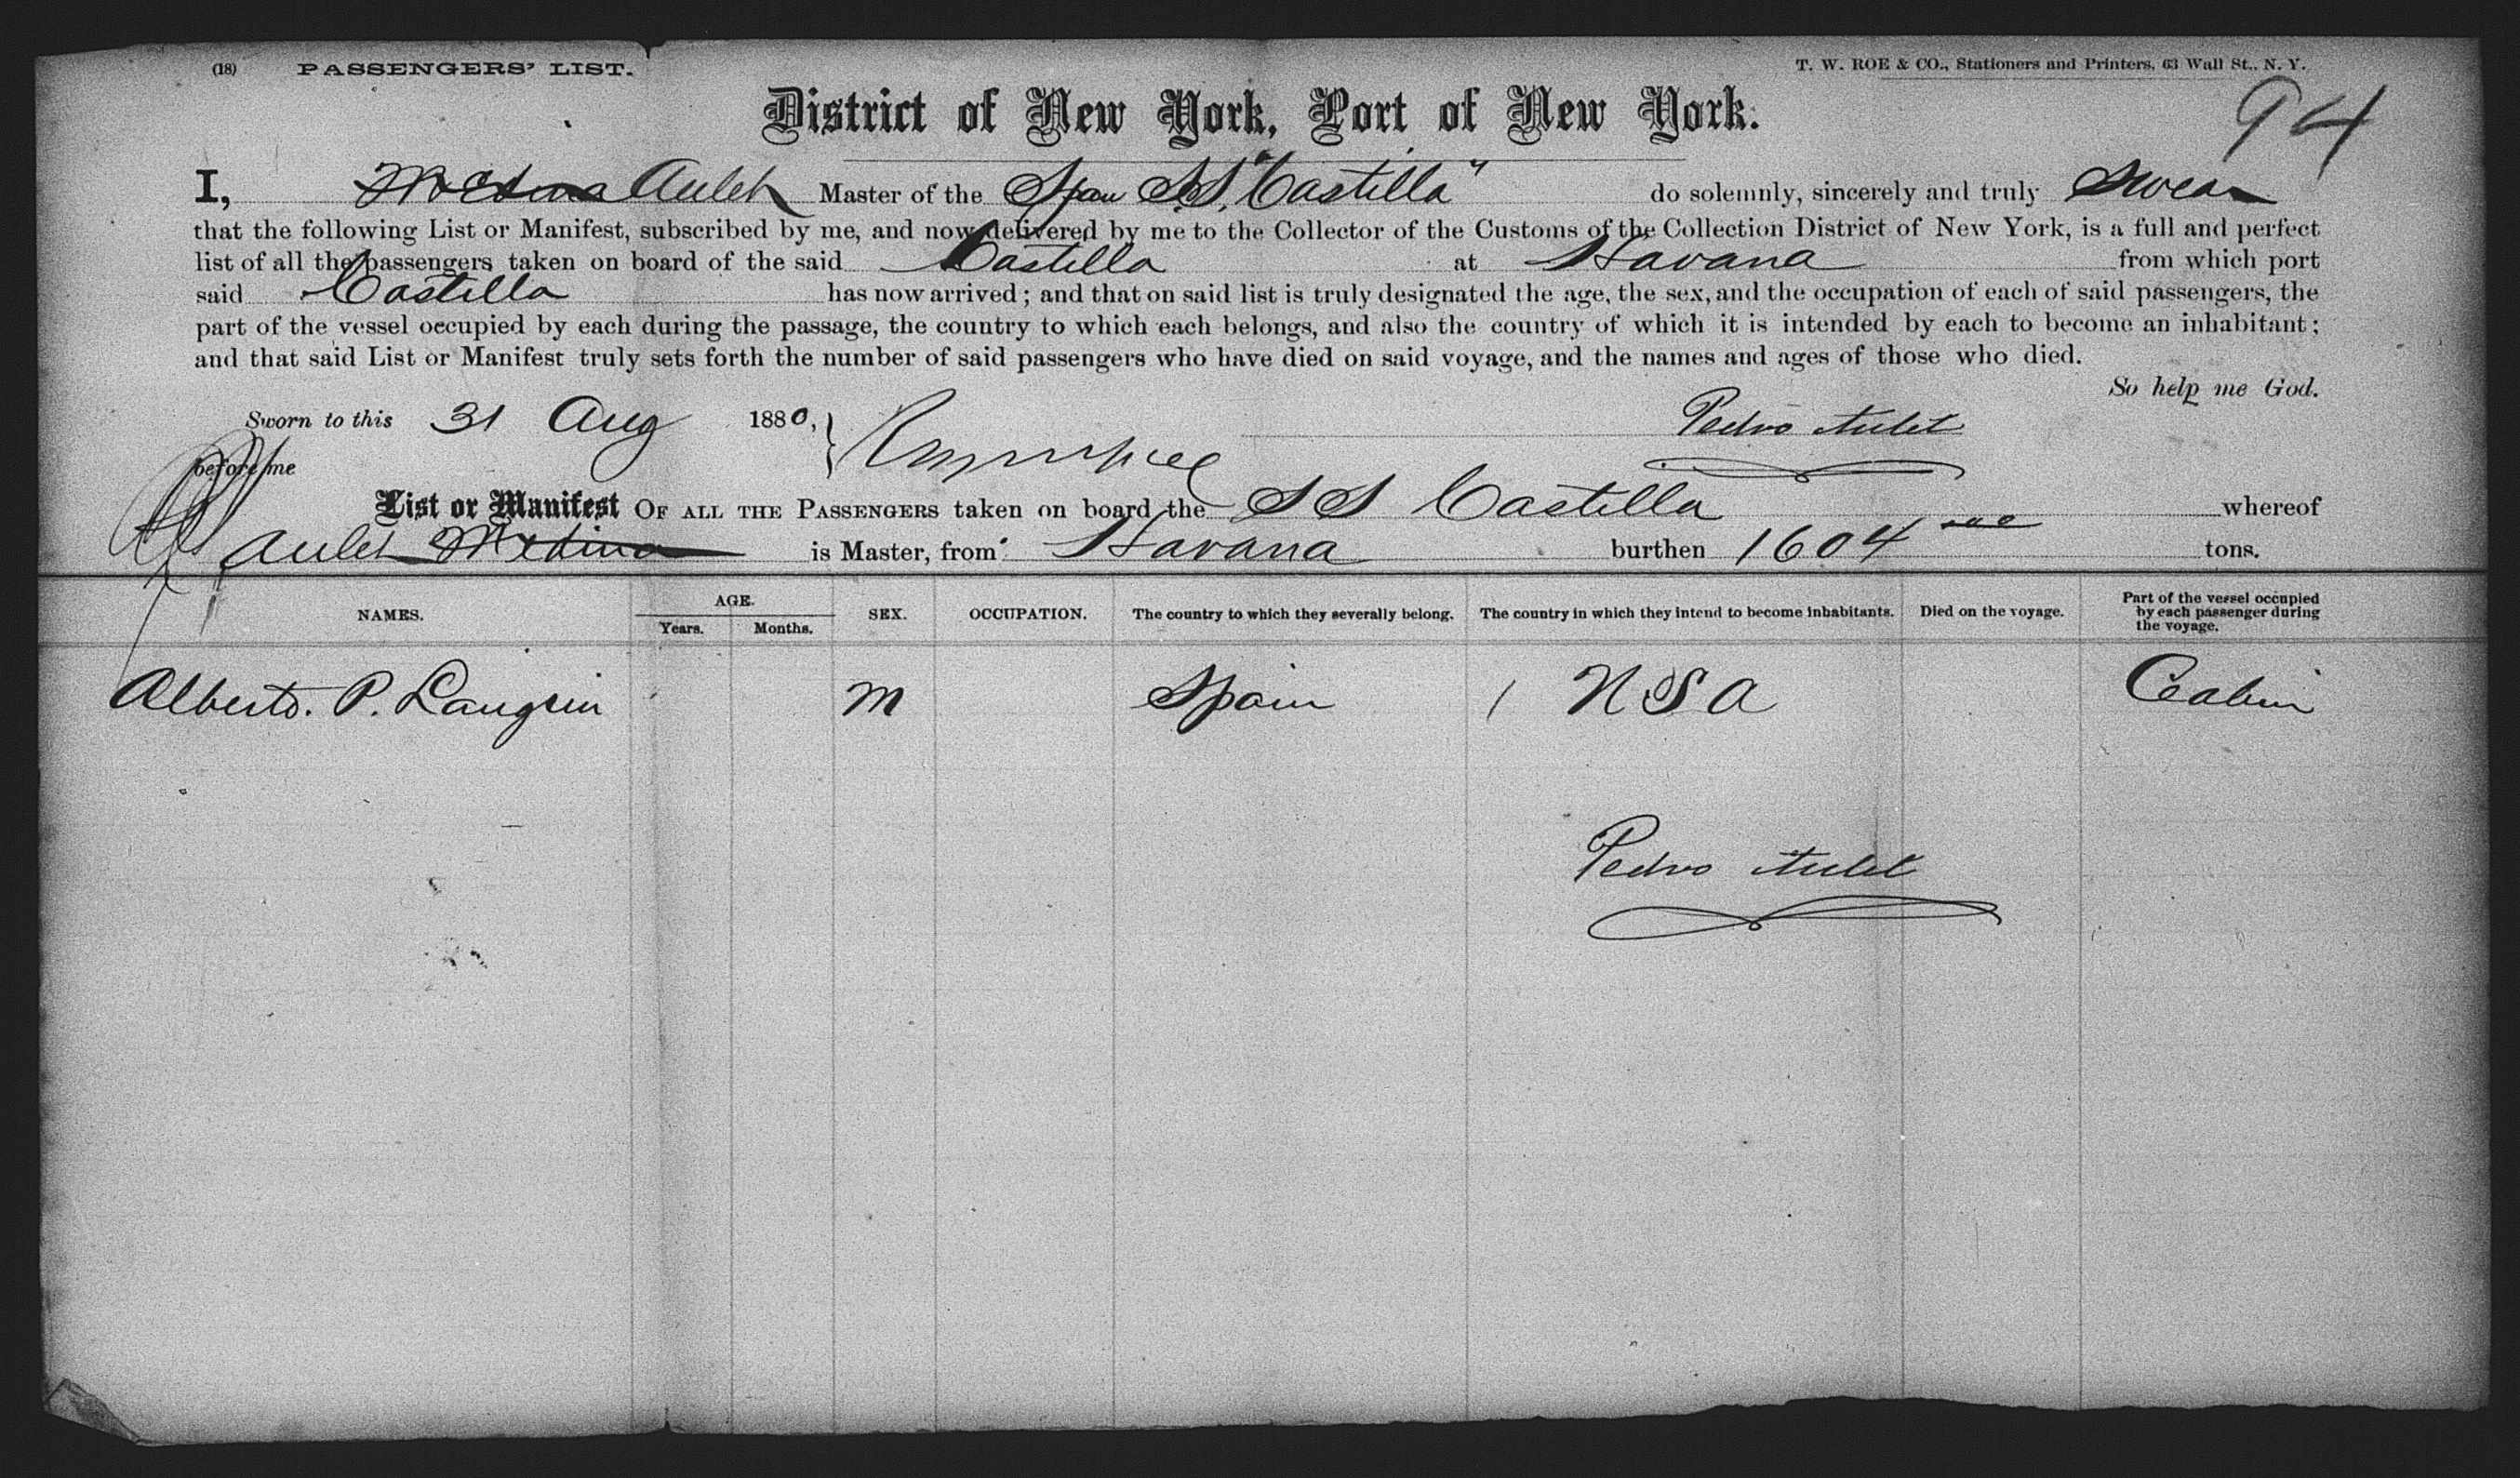 (18) PASSENGERS' LIST.
T. W. ROE & CO., Stationers and Printers, 63 Wall St., N. Y.
94
District of New York, Port of New York.
I, Medina Aulet Master of the Span S.S. "Castilla" do solemnly, sincerely and truly swear
that the following List or Manifest, subscribed by me, and now delivered by me to the Collector of the Customs of the Collection District of New York, is a full and perfect
list of all the passengers taken on board of the said Castilla at Havana from which port
said Castilla has now arrived; and that on said list is truly designated the age, the sex, and the occupation of each of said passengers, the
part of the vessel occupied by each during the passage, the country to which each belongs, and also the country of which it is intended by each to become an inhabitant;
and that said List or Manifest truly sets forth the number of said passengers who have died on said voyage, and the names and ages of those who died.
So help me God.
Sworn to this 31 Aug 1880,
Pedro Aulet
before me
List or Manifest OF ALL THE PASSENGERS taken on board the SS Castilla whereof
Aulet Medina is Master, from Havana burthen 1604 tons.
NAMES. AGE. Years. Months. SEX. OCCUPATION. The country to which they severally belong. The country in which they intend to become inhabitants. Died on the voyage. Part of the vessel occupied by each passenger during the voyage.
Alberto. P. M Spain / USA Cabin
Pedro Aulet